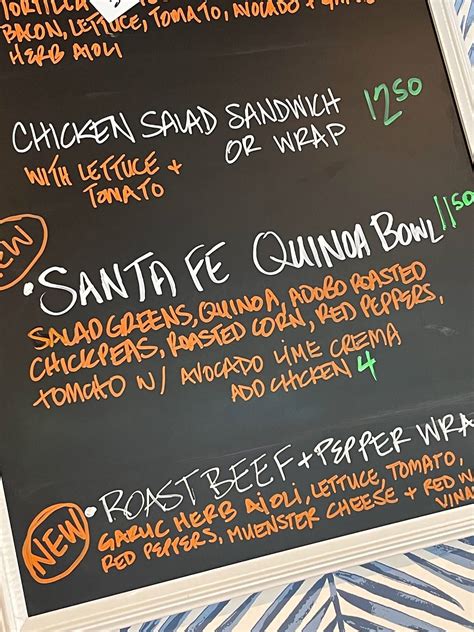 TORTILLA
BACON, LETTUCE, TOMATO, AVOCADO +
HERB AIOLI
CHICKEN SALAD SANDWICH 12.50
OR WRAP
WITH LETTUCE +
TOMATO
NEW
• SANTA FE QUINOA BOWL 11.50
SALAD GREENS, QUINOA, ADOBO ROASTED
CHICKPEAS, ROASTED CORN, RED PEPPERS,
TOMATO W/ AVOCADO LIME CREMA
ADD CHICKEN 4
NEW
• ROAST BEEF + PEPPER WRA
GARLIC HERB AIOLI, LETTUCE, TOMATO,
RED PEPPERS, MUENSTER CHEESE + RED W
VIN